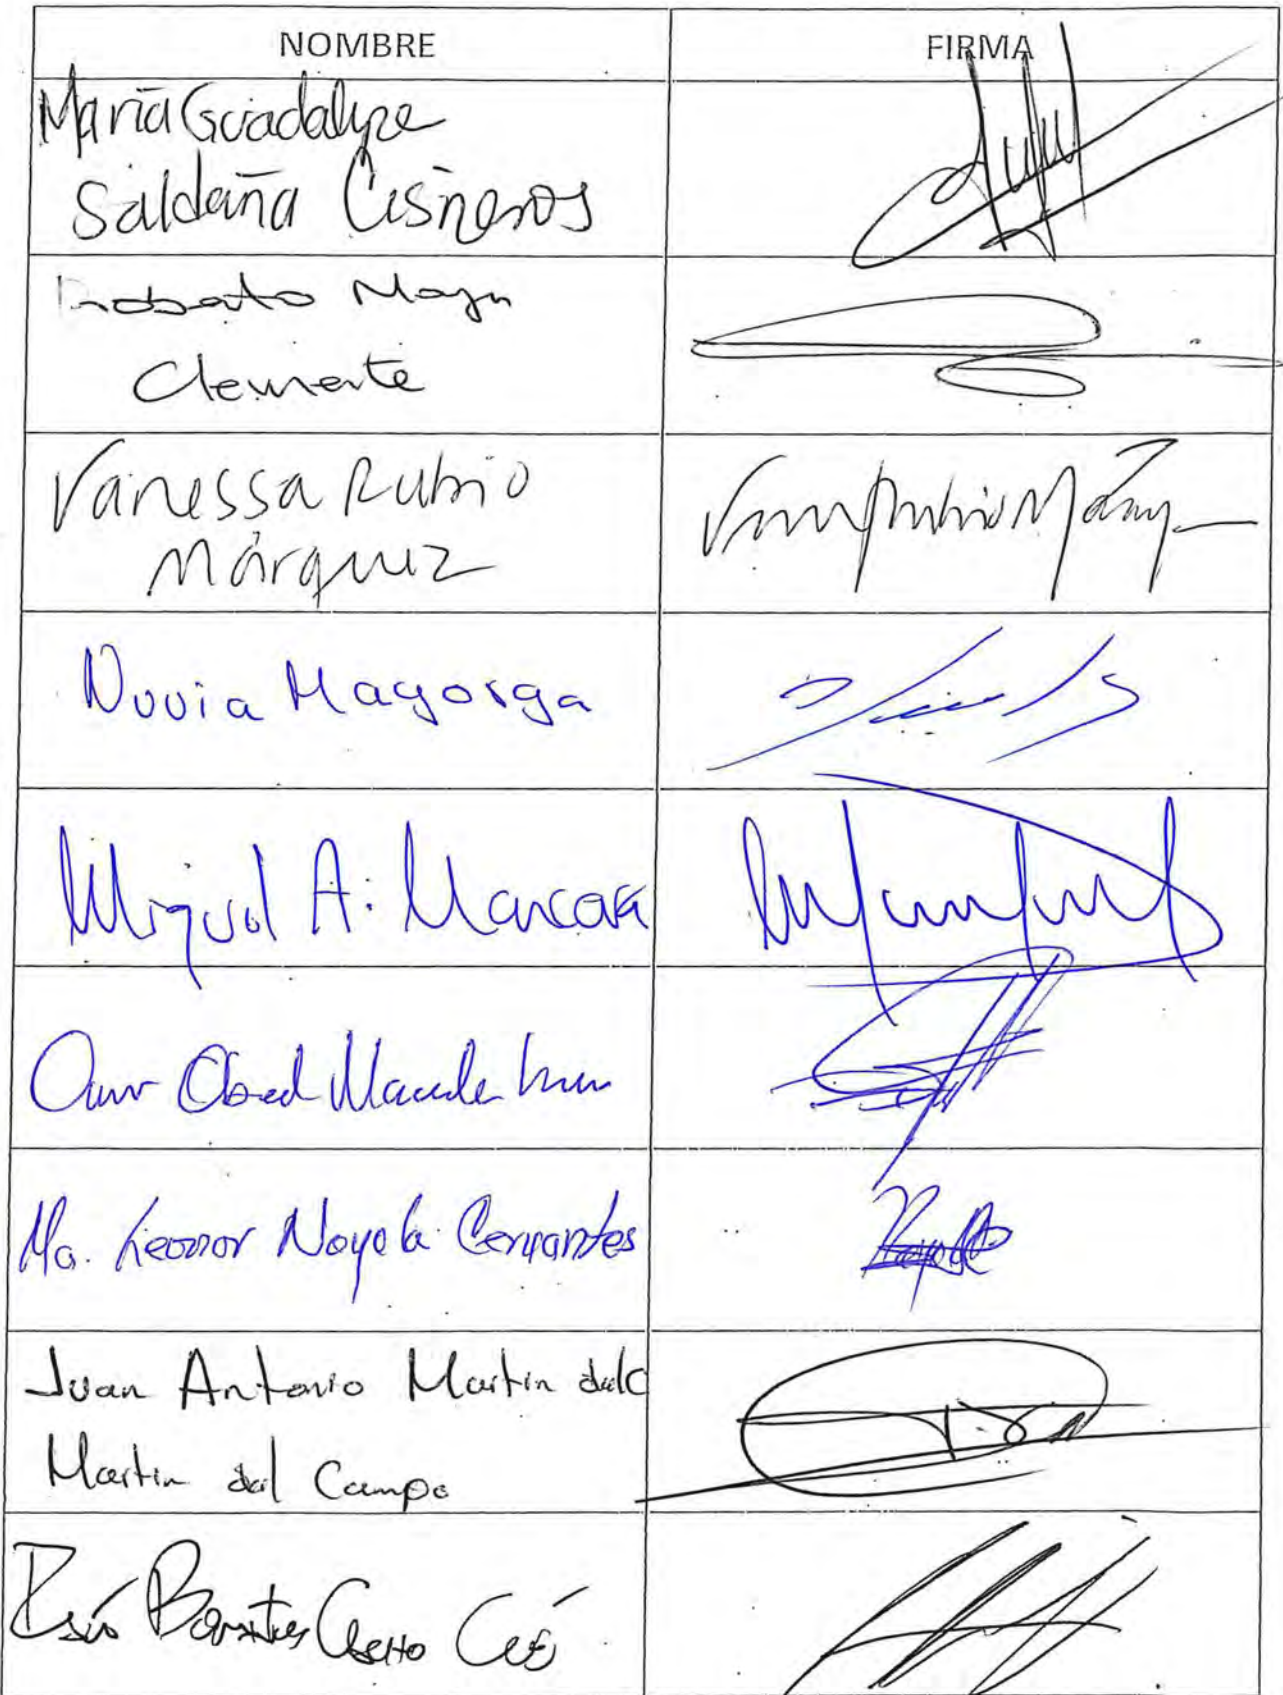 NOMBRE FIRMA
María Guadalupe
Saldaña Cisneros
Roberto Moya
Clemente
Vanessa Rubio
Márquez
Nuvia Mayorga
Miguel A. Mancera
Omar Obed Maceda Luna
Ma. Leonor Noyola Cervantes
Juan Antonio Martin del C
Martin del Campo